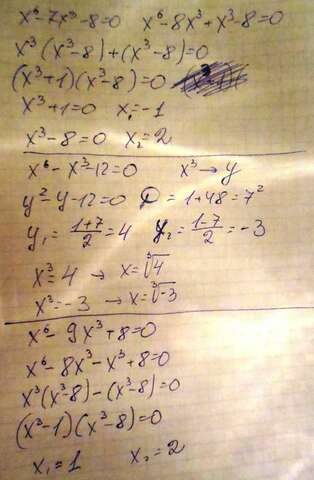 x⁶-7x³-8=0 x⁶-8x³+x³-8=0
x³(x³-8)+(x³-8)=0
(x³+1)(x³-8)=0
x³+1=0 x₁=-1
x³-8=0 x₂=2
x⁶-x³-12=0 x³→y
y²-y-12=0 D=1+48=7²
y₁=(1+7)/2=4 y₂=(1-7)/2=-3
x³=4 → x=∛4
x³=-3 → x=∛-3
x⁶-9x³+8=0
x⁶-8x³-x³+8=0
x³(x³-8)-(x³-8)=0
(x³-1)(x³-8)=0
x₁=1 x₂=2